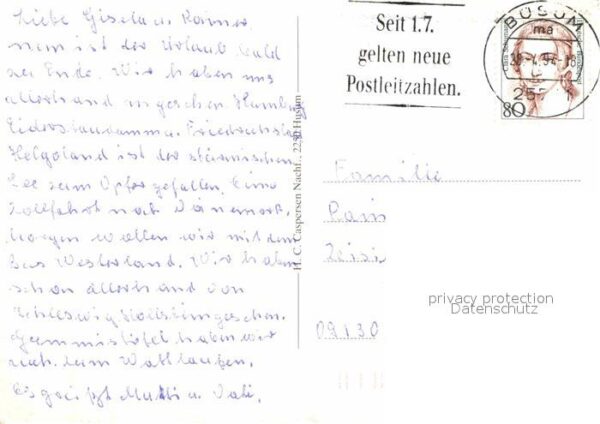 Liebe Gisela u. Rainer
nun ist der Urlaub bald
zu Ende. Wir haben uns
allerhand angesehen. Hamburg
Eidersta damm. Friedrichsta
Helgoland ist der stürmischen
See zum Opfer gefallen. Eine
Zollfahrt nach Dänemark.
Morgen wollen wir mit dem
Bus Westerland. Wir haben
schon allerhand von
Schleswig Holstein gesehen.
Gummistiefel haben wir
auch zum Wattlaufen.
Es grüßt Mutti u. Vati.
H. C. Caspersen Nachf., 2250 Husum
Seit 1.7.
gelten neue
Postleitzahlen.
BÜSUM
ma
25
80
Familie
Rain
Zeisi
09130
privacy protection
Datenschutz